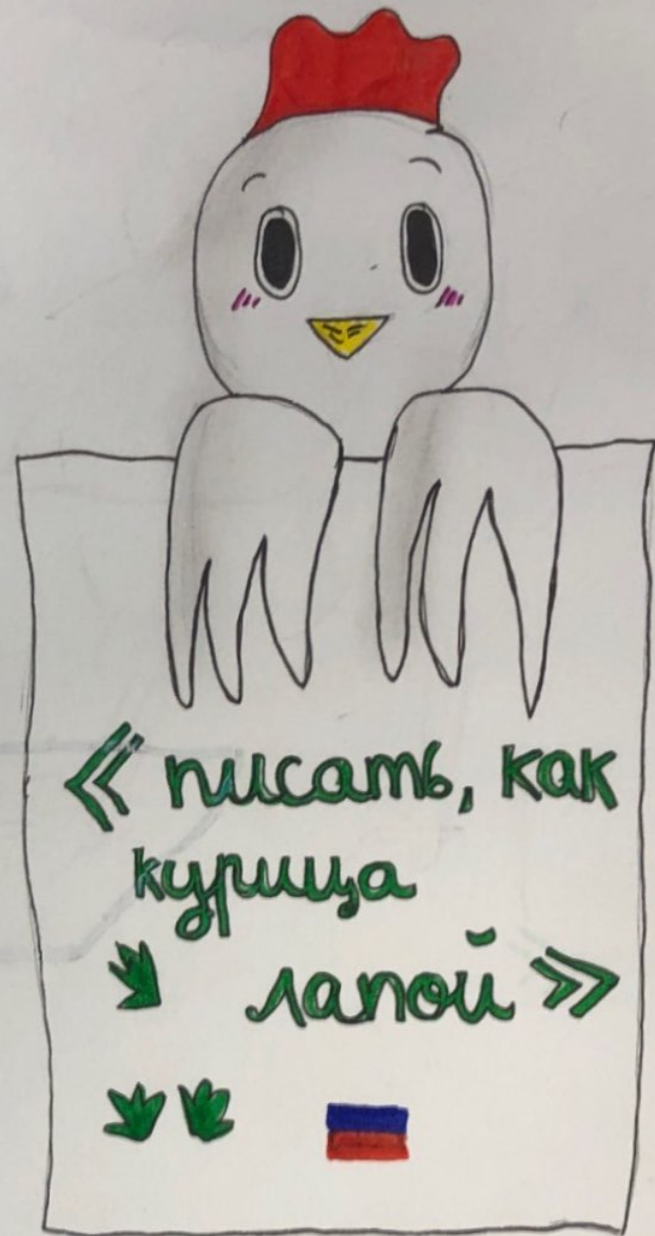 « писать, как
курица
лапой »